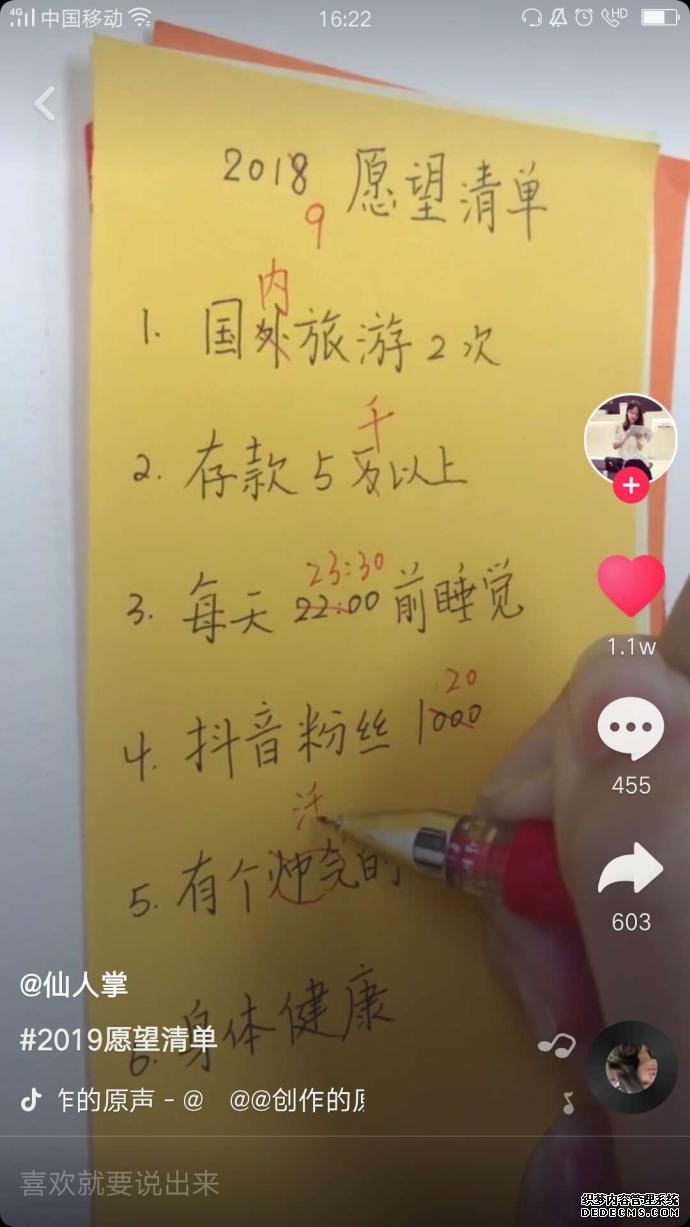 4G 中国移动 16:22 HD
2018 愿望清单
9
内
1. 国外旅游2次
千
2. 存款5万以上
23:30
3. 每天22:00前睡觉
20
4. 抖音粉丝1000
活
5. 有个帅气的
6. 身体健康
1.1w
455
603
@仙人掌
#2019愿望清单
作的原声 - @ @@创作的原
喜欢就要说出来
织梦内容管理系统
DEDECMS.COM